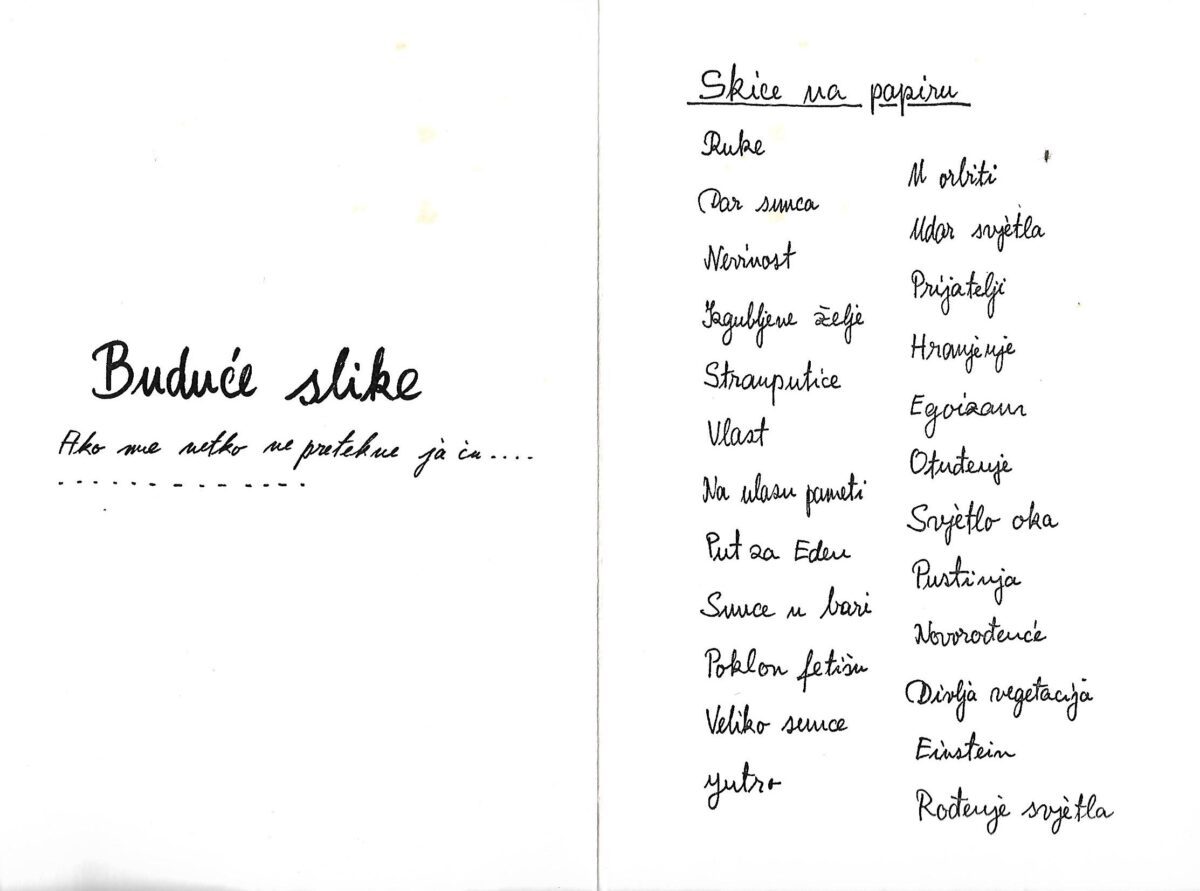 Buduće slike
Ako me netko ne pretekne ja ću....
. . . . . - - . - - . - - .
Skice na papiru
Ruke
Dar sunca
Nevinost
Izgubljene želje
Stranputice
Vlast
Na ulasu pameti
Put za Eden
Sunce u bari
Poklon fetišu
Veliko sunce
Jutro
U orbiti
Udar svjetla
Prijatelji
Hranjenje
Egoizam
Otuđenje
Svjetlo oka
Pustinja
Novorođenče
Divlja vegetacija
Einstein
Rođenje svjetla